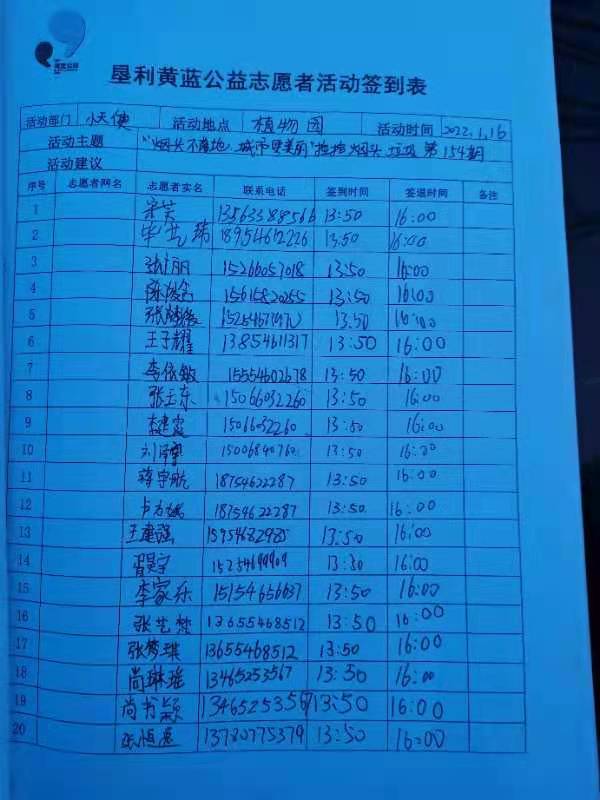 垦利黄蓝公益志愿者活动签到表
活动部门 小天使 活动地点 植物园 活动时间 2022.1.16
活动主题 "烟头不落地、城市更美丽"捡拾烟头 垃圾 第154期
活动建议
序号 志愿者网名 志愿者实名 联系电话 签到时间 签退时间 备注
1 宋芸 13563388566 13:50 16:00
2 毕艺玮 18954612226 13:50 16:00
3 张丽 15266057018 13:50 16:00
4 15615820255 13:50 16:00
5 13:50 16:00
6 王子耀 13854611317 13:50 16:00
7 李依敏 15554602678 13:50 16:00
8 张云东 15066032260 13:50 16:00
9 15066032260 13:50 16:00
10 15006840760 13:50 16:00
11 蒋宇航 18754622287 13:50 16:00
12 18754622287 13:50 16:00
13 王建强 15954682985 13:50 16:00
14 13:50 16:00
15 李家乐 15154656637 13:50 16:00
16 张艺梵 13655468512 13:50 16:00
17 张梦琪 13655468512 13:50 16:00
18 尚琳瑶 13465253567 13:50 16:00
19 尚书颖 13465253567 13:50 16:00
20 13780775379 13:50 16:00